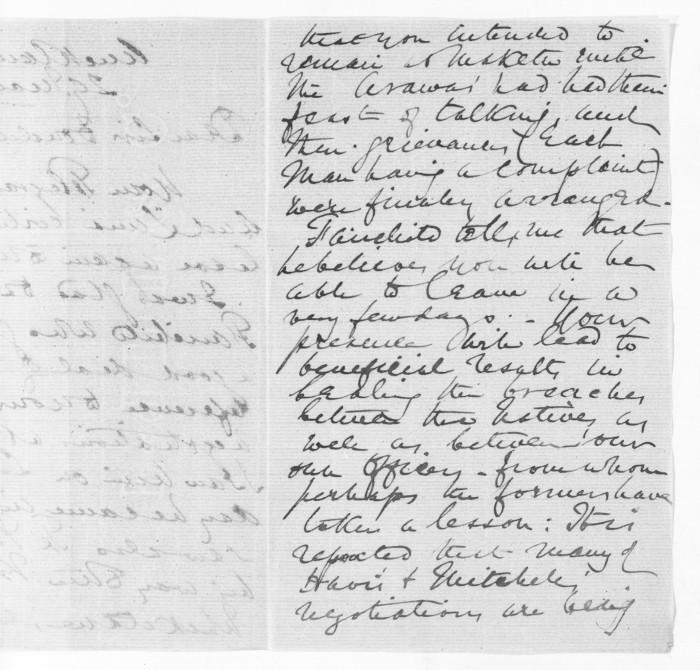 that you intended to
remain at Maketu until
the Arawas had had their
feast of talking, and
their grievances (each
Man having a complaint)
were finally arranged -
Fairchild tells me that
he believes you will be
able to leave in a
very few days. - Your
presence will lead to
beneficial results in
healing the breaches
between the natives as
well as between our
own Officers - from whom
perhaps the formers have
taken a lesson: It is
reported that many of
Davis & Mitchell's
negotiations are being